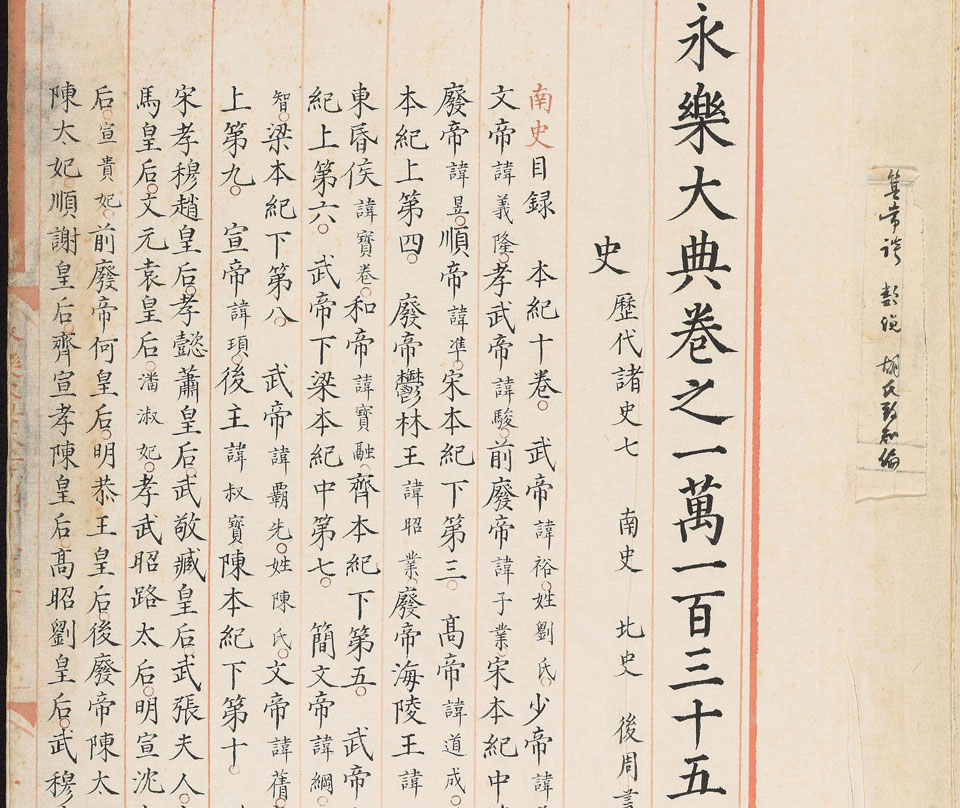 永樂大典卷之一萬一百三十五
史 歷代諸史七 南史 北史 後周書
南史目録 本紀十卷。 武帝諱裕。姓劉氏。少帝諱
文帝諱義隆。孝武帝諱駿。前廢帝諱子業。宋本紀中
廢帝諱昱。順帝諱準。宋本紀下第三。 高帝諱道成。
本紀上第四。 廢帝鬱林王諱昭業。廢帝海陵王諱
東昏侯諱寶卷。和帝諱寶融。齊本紀下第五。 武帝
紀上第六。 武帝下梁本紀中第七。 簡文帝諱綱。
智。梁本紀下第八。 武帝諱霸先。姓陳氏。文帝諱蒨。
上第九。 宣帝諱頊。後主諱叔寶陳本紀下第十。
宋孝穆趙皇后。孝懿蕭皇后。武敬臧皇后武張夫人。
馬皇后。文元袁皇后。潘淑妃。孝武昭路太后。明宣沈
后。宣貴妃。前廢帝何皇后。明恭王皇后。後廢帝陳太
陳太妃。順謝皇后。齊宣孝陳皇后。高昭劉皇后。武穆